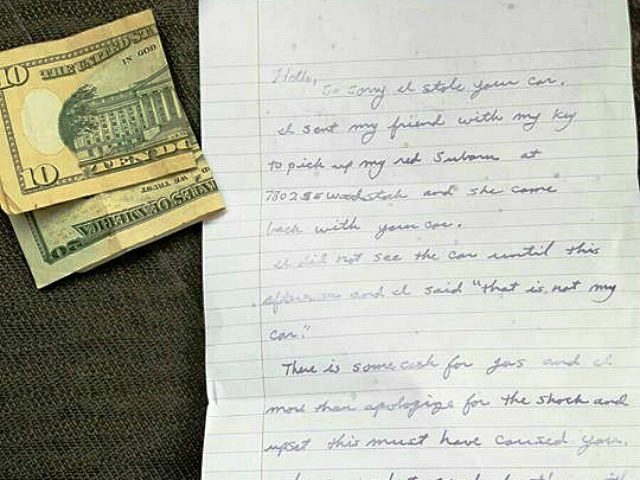 10
THE UNITED ST
IN GOD
10
TEN DO
WE TRUST
STATES OF AMERICA
20
Hello,
So sorry I stole your car.
I sent my friend with my key
to pick up my red Subaru at
7802 SE Woodstock and she came
back with your car.
I did not see the car until this
afternoon and I said "that is not my
car."
There is some cash for gas and I
more than apologize for the shock and
upset this must have caused you.